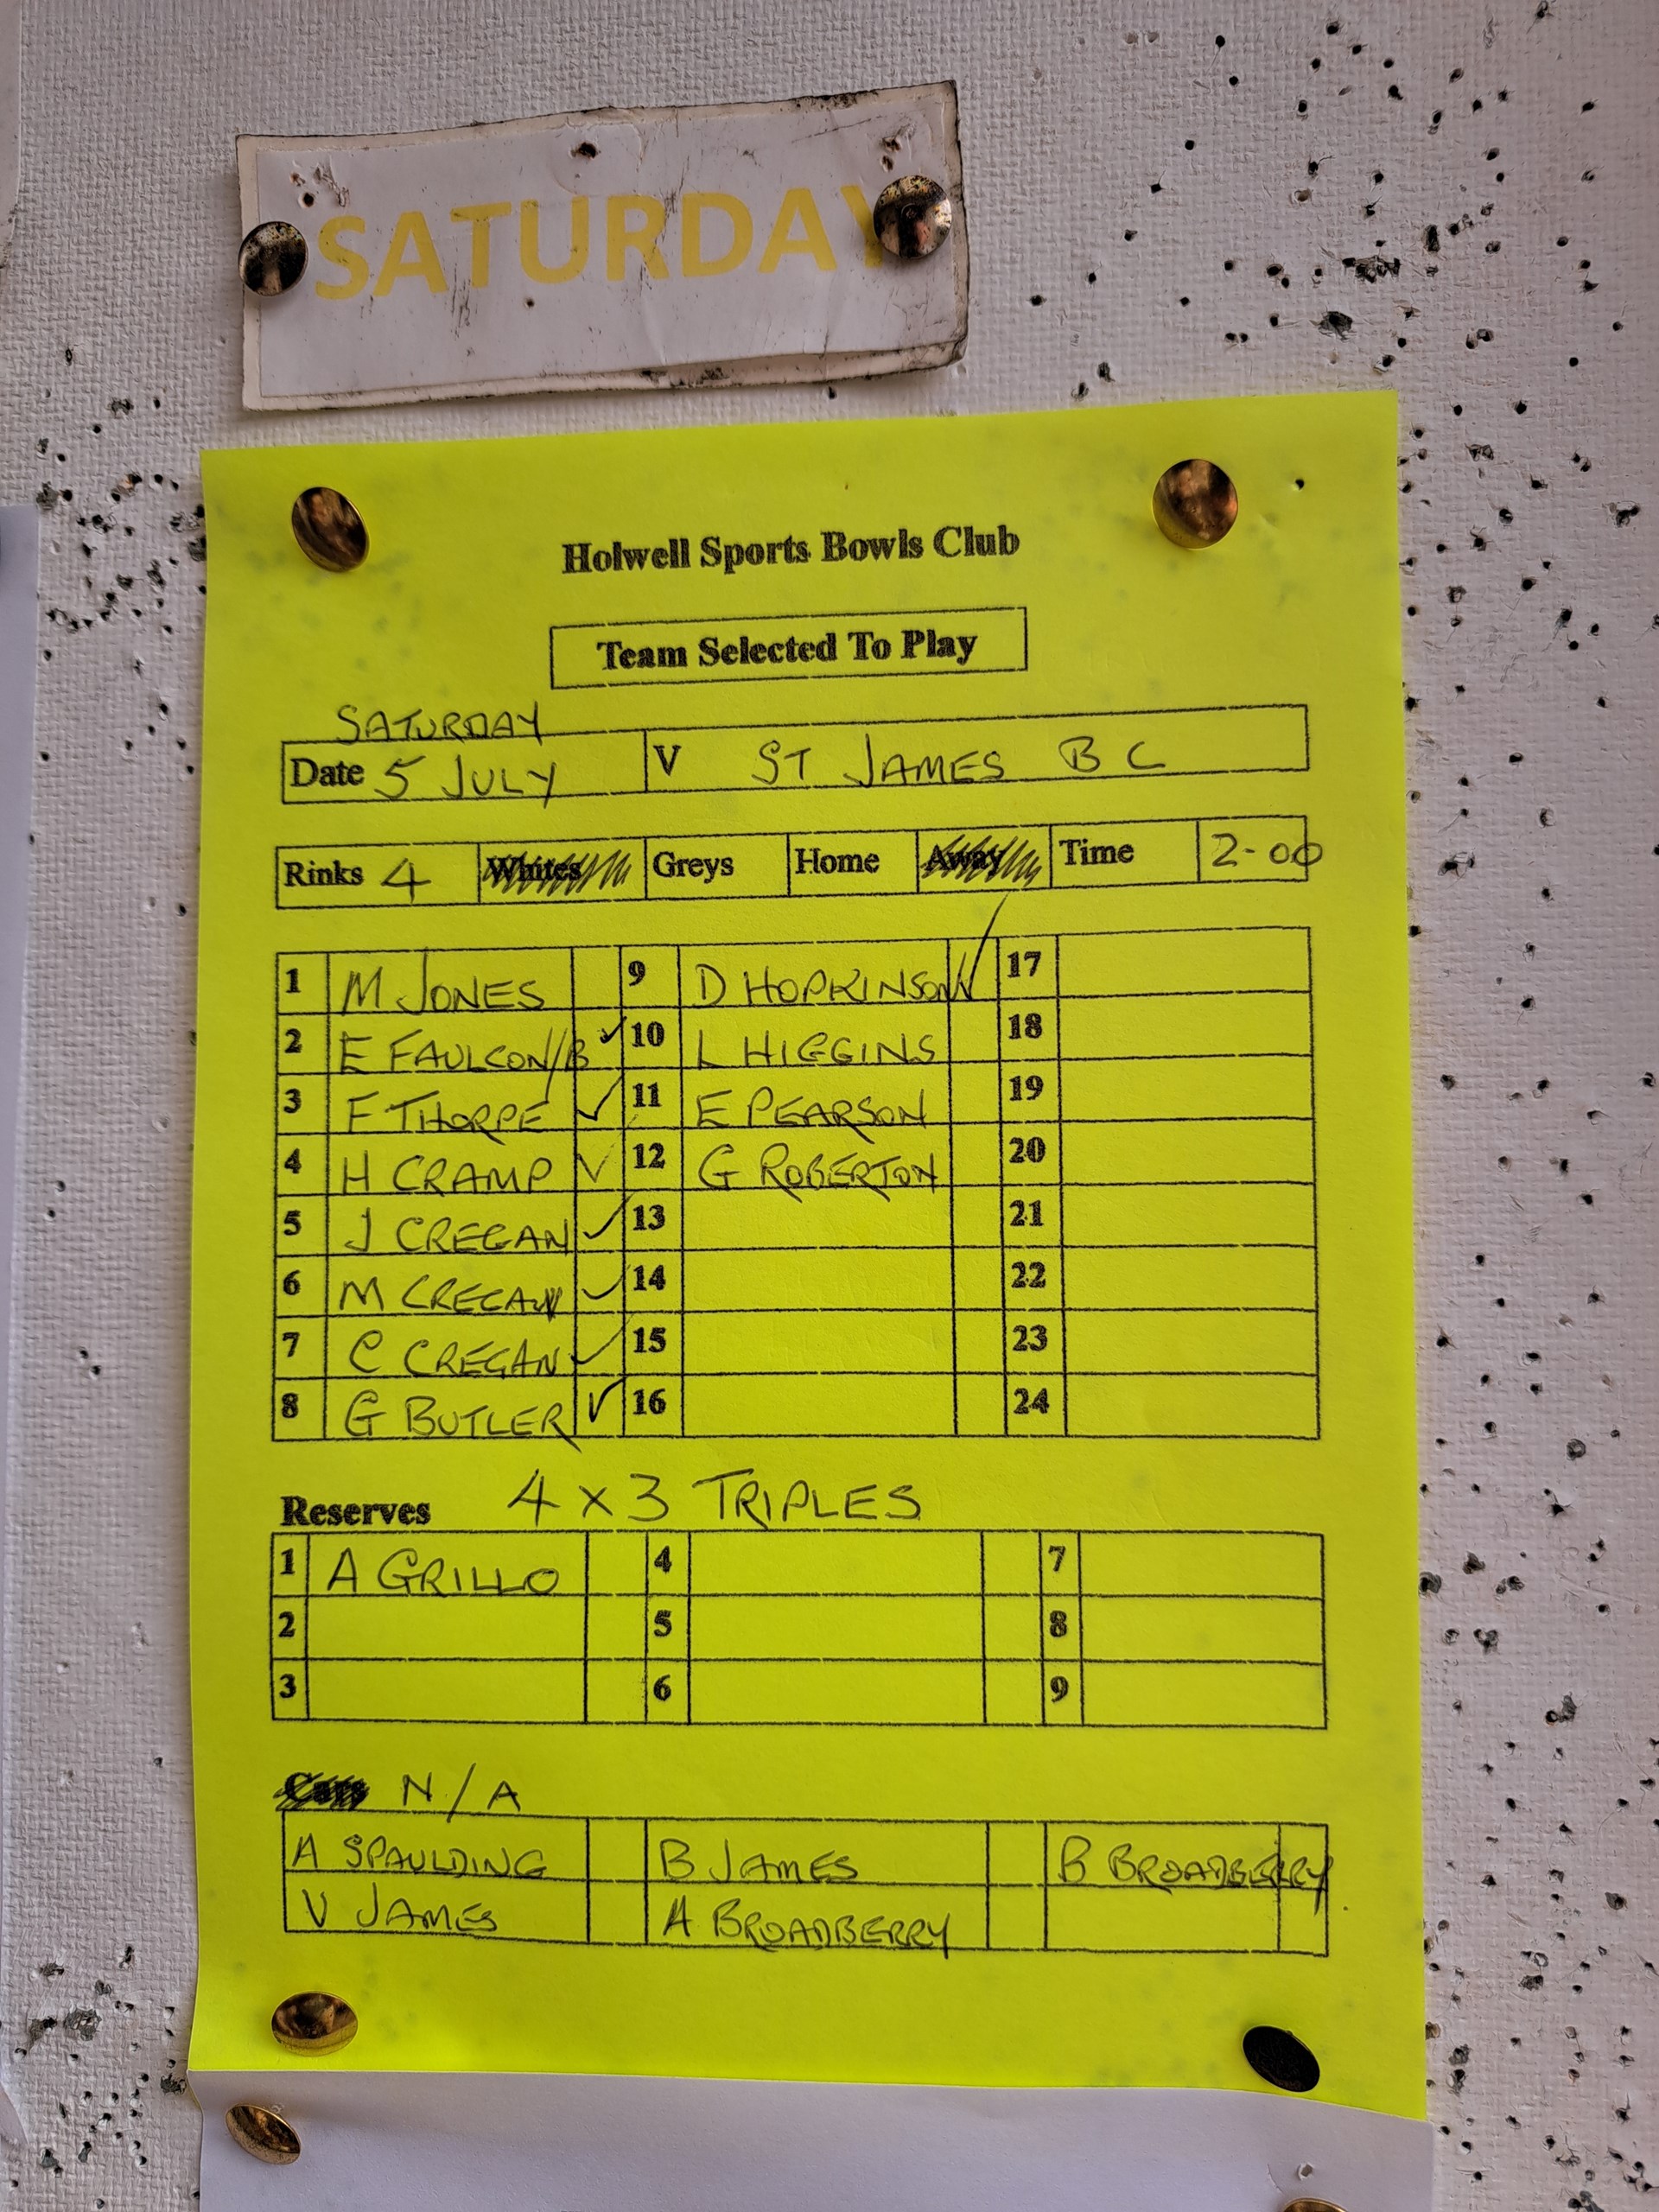 SATURDAY
Holwell Sports Bowls Club
Team Selected To Play
SATURDAY
Date 5 JULY V ST JAMES B C
Rinks 4 Whites Greys Home Away Time 2-00
1 M JONES 9 D HOPKINSON ✓ 17
2 E FAULCON/B ✓ 10 L HIGGINS 18
3 F THORPE ✓ 11 E PEARSON 19
4 H CRAMP ✓ 12 G ROBERTON 20
5 J CREGAN ✓ 13 21
6 M CREGAN ✓ 14 22
7 C CREGAN ✓ 15 23
8 G BUTLER ✓ 16 24
Reserves 4 x 3 TRIPLES
1 A GRILLO 4 7
2 5 8
3 6 9
Cars N/A
A SPAULDING B JAMES B BROADBERRY
V JAMES A BROADBERRY